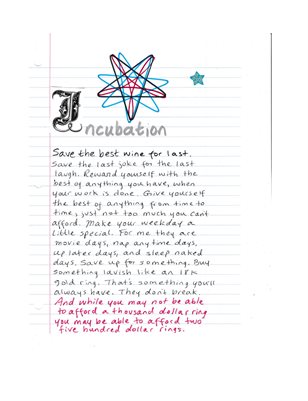 Incubation
Save the best wine for last.
Save the last joke for the last
laugh. Reward yourself with the
best of anything you have, when
your work is done. Give yourself
the best of anything from time to
time, just not too much you can't
afford. Make your weekday a
little special. For me they are
movie days, nap anytime days,
up later days, and sleep naked
days. Save up for something. Buy
something lavish like an 18k
gold ring. That's something you'll
always have. They don't break.
And while you may not be able
to afford a thousand dollar ring
you may be able to afford two
five hundred dollar rings.